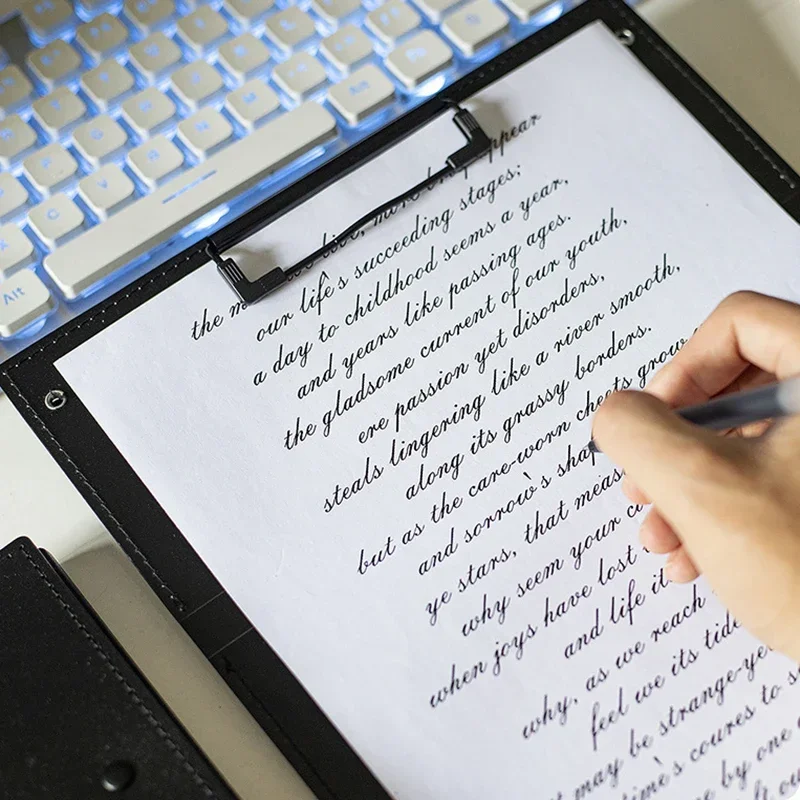 Alt
the we live, more
our life's succeeding stages;
a day to childhood seems a year,
and years like passing ages.
the gladsome current of our youth,
ere passion yet disorders,
steals lingering like a river smooth,
along its grassy borders.
but as the care-worn cheets grow
and sorrow's
ye stars, that
why seem your
when joys have lost
and life
why, as we reach
feel we its tide
may be
coures to
by one